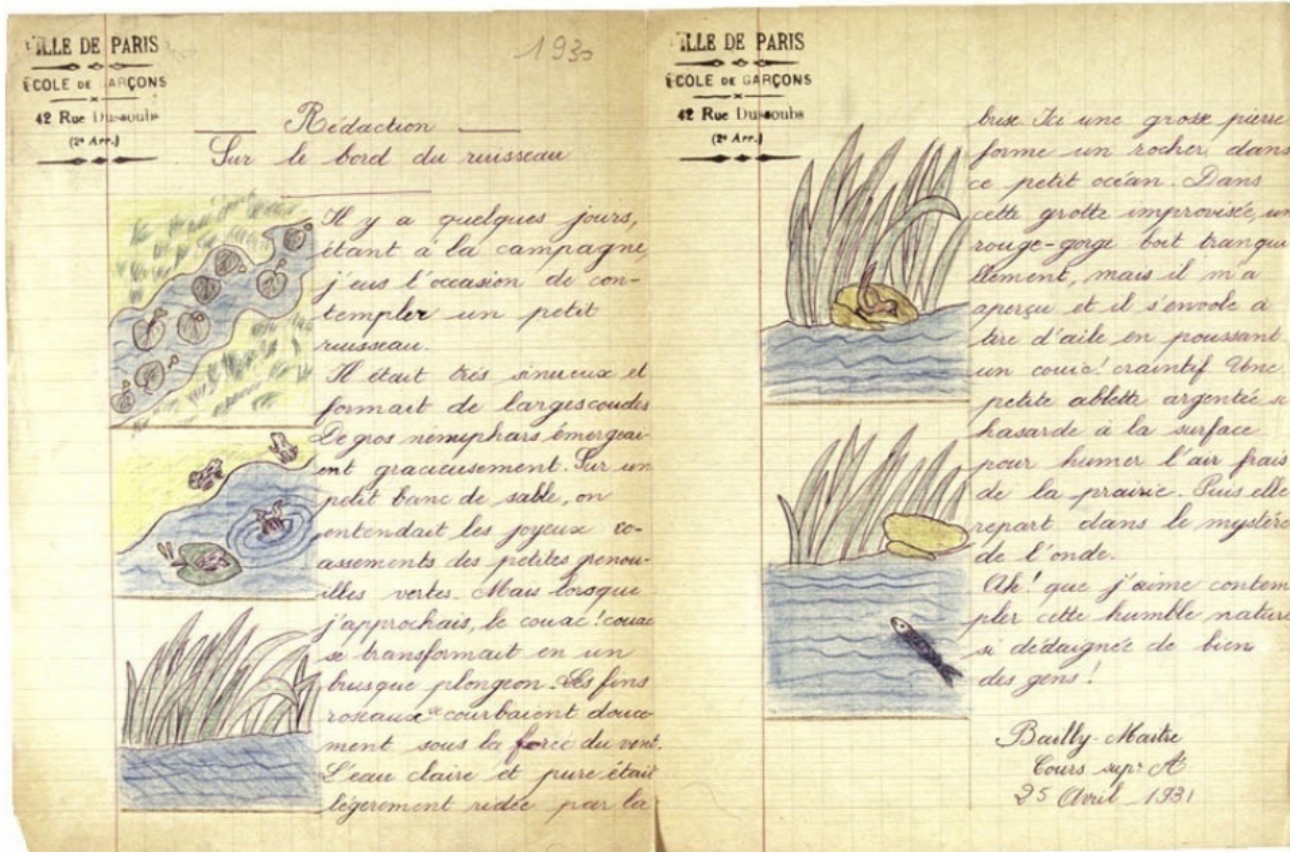 VILLE DE PARIS
ÉCOLE DE GARÇONS
42 Rue Dussoubs
(2e Arr.)
1930
Rédaction
Sur le bord du ruisseau
Il y a quelques jours,
étant à la campagne,
j'eus l'occasion de con-
templer un petit
ruisseau.
Il était très sinueux et
formait de larges coudes
De gros nénuphars émergeai-
ent gracieusement. Sur un
petit banc de sable, on
entendait les joyeux co-
assements des petites grenou-
illes vertes. Mais lorsque
j'approchais, le couac! couac
se transformait en un
brusque plongeon. Les fins
roseaux se courbaient douce-
ment sous la force du vent.
L'eau claire et pure était
légèrement ridée par la
VILLE DE PARIS
ÉCOLE DE GARÇONS
42 Rue Dussoubs
(2e Arr.)
brise. Ici une grosse pierre
forme un rocher dans
ce petit océan. Dans
cette grotte improvisée, un
rouge-gorge boit tranqui
llement, mais il m'a
aperçu et il s'envole à
tire d'aile en poussant
un couic! craintif. Une
petite ablette argentée se
hasarde à la surface
pour humer l'air frais
de la prairie. Puis elle
repart dans le mystère
de l'onde.
Ah! que j'aime contem
pler cette humble nature
si dédaignée de bien
des gens!
Bailly-Maitre
Cours supr A
25 Avril 1931